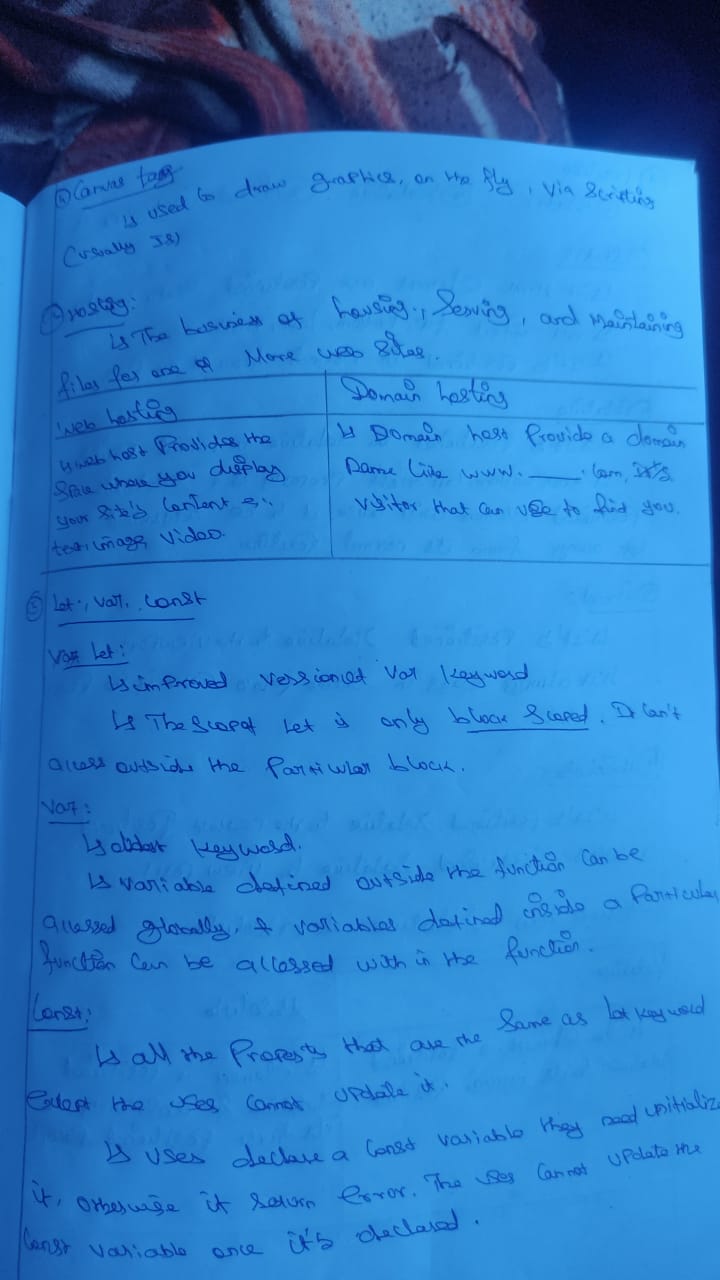 Canvas tags
↳ used to draw graphics, on the fly, via Scripting
(usually JS)
Hosting:
↳ The business of housing, Serving, and Maintaining
files for one or More web Sites.
Web hosting
↳ web host Provides the
Space where you display
your Site's Content
text, image, Video.
Domain hosting
↳ Domain host Provide a domain
Name like www.____.com, it's
Visitor that can use to find you.
⑤ Let, Var, Const
Let:
↳ improved version of Var keyword
↳ The Scope of Let is only block Scoped. It Can't
access outside the Particular block.
Var:
↳ oldest keyword.
↳ variable defined outside the function Can be
accessed globally, & variables defined inside a Particular
function Can be accessed with in the function.
Const:
↳ all the Property that are the Same as let keyword
Except the user Cannot update it.
↳ user declare a Const variable they need initialize
it, otherwise it return Error. The user Cannot update the
Const variable once it's declared.